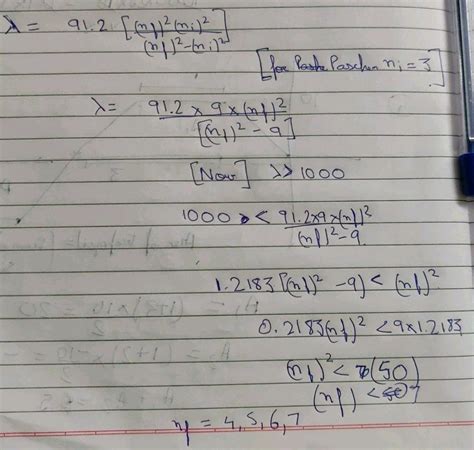 λ = 91.2 [(nf)²(ni)² / (nf)²-(ni)²]
[for Paschen ni = 3]
λ = 91.2 x 9 x (nf)² / [(nf)² - 9]
[Now] λ >> 1000
1000 < 91.2x9x(nf)² / (nf)²-9
1.2183[(nf)² - 9] < (nf)²
0.2183(nf)² < 9x1.2183
(nf)² < (50)
(nf) < 7
nf = 4, 5, 6, 7